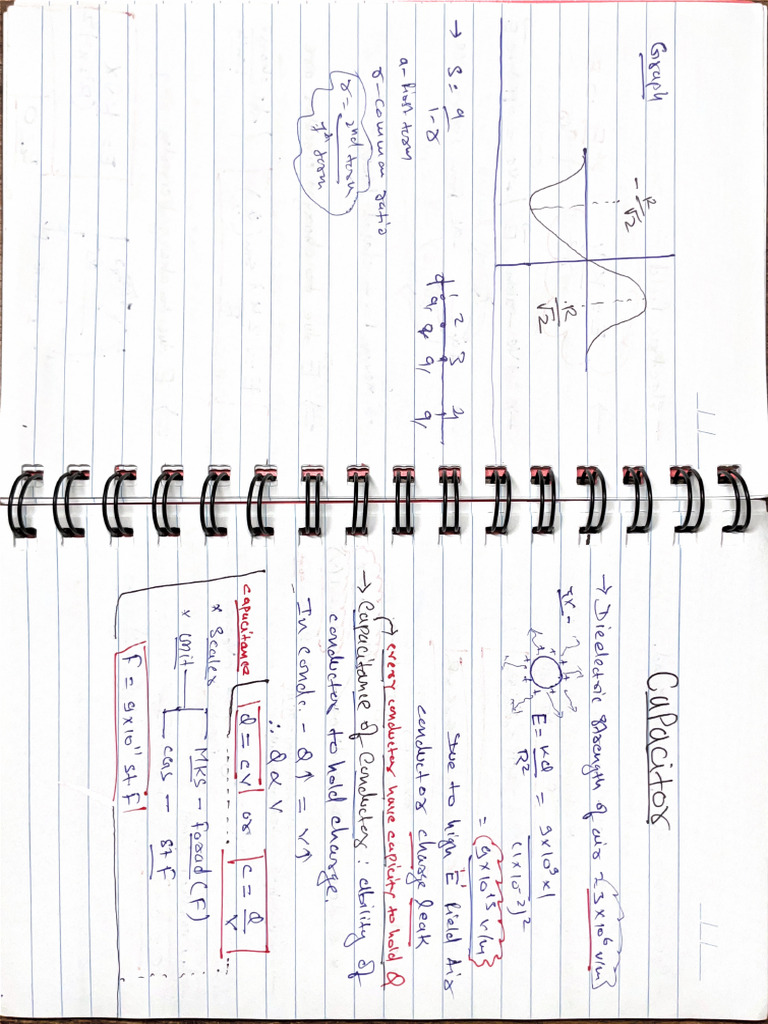 Graph
- R/√2
R/√2
→ S = a/1-r
a - first term
r - common ratio
r = 2nd term/1st term
1 2 3 4
q, q, q, q,
Capacitor
→ Dielectric strength of air ≈ 3×10⁶ v/m
EX -
E = KQ/R² = 9×10⁹×1/(1×10⁻²)²
= 9×10¹³ v/m
Due to high E field Air
conductor charge leak
→ every conductor have capicity to hold Q
→ Capacitance of Conductor : ability of
conductor to hold charge.
In condc. - Q↑ = V↑
∴ Q ∝ V
capacitance Q = CV or C = Q/V
× Scaler
× unit MKS - farad (F)
CGS - stF
F = 9×10¹¹ stF